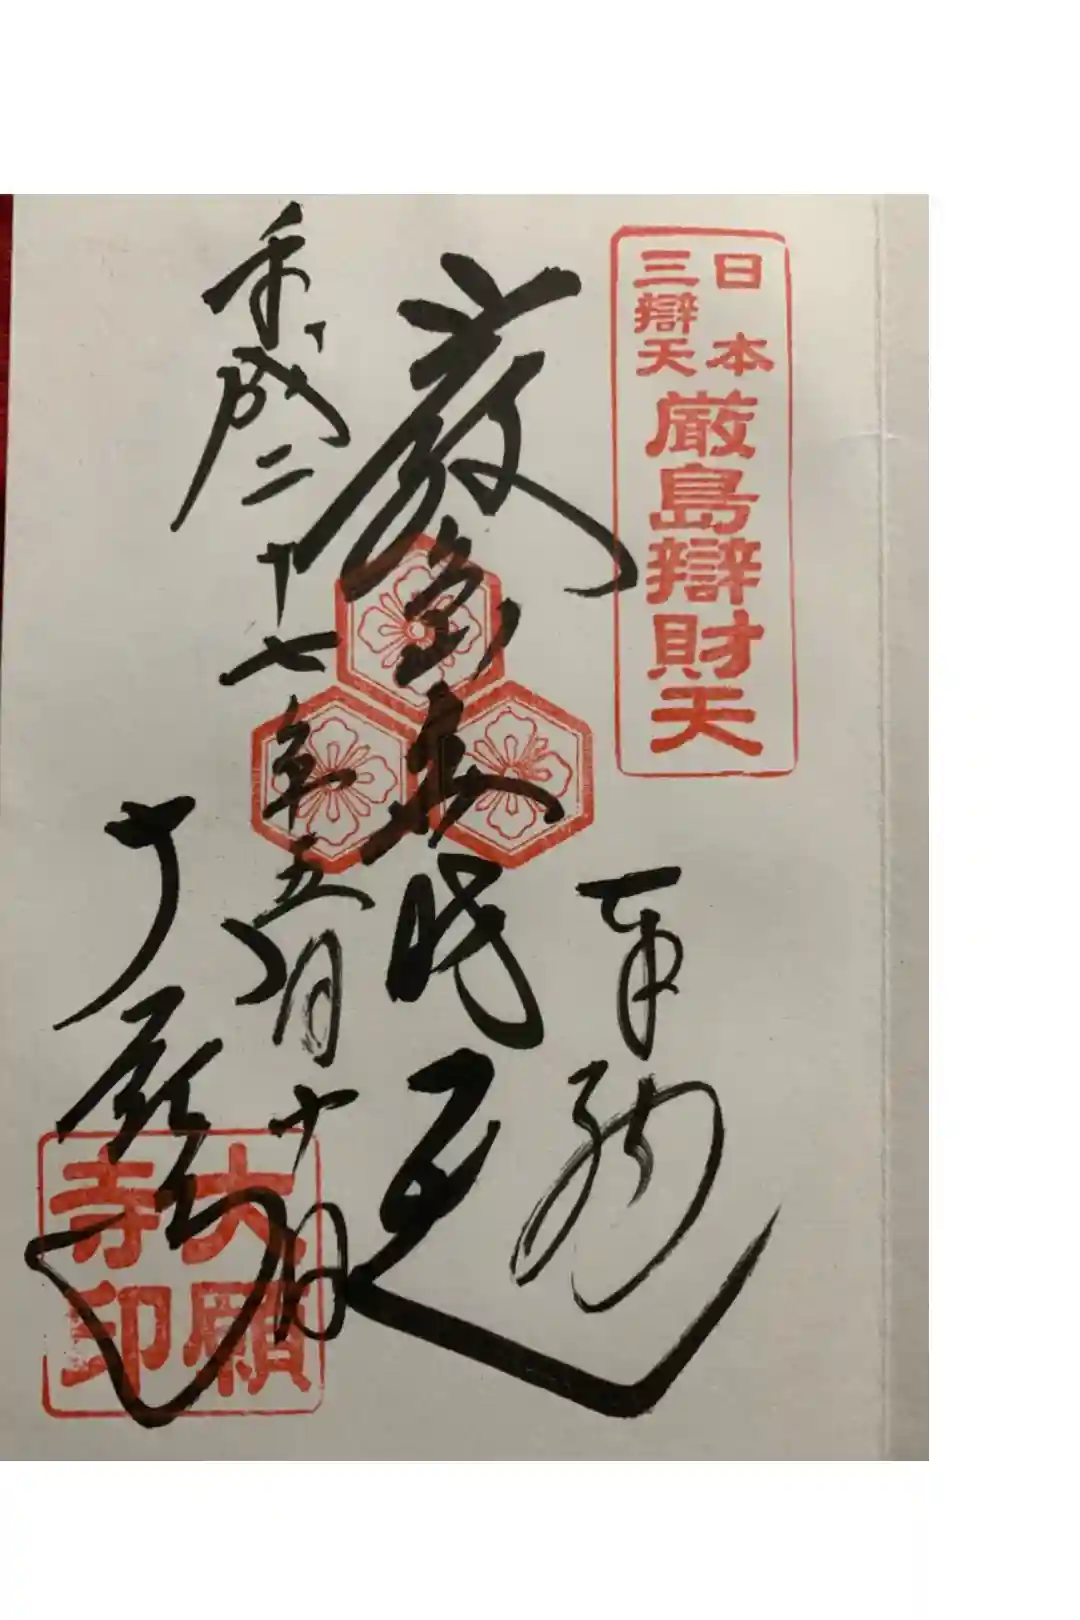 日本
三辯天
厳島辯財天
奉拝
厳島弁財天
平成二十七年五月十日
大願寺
大願
寺印